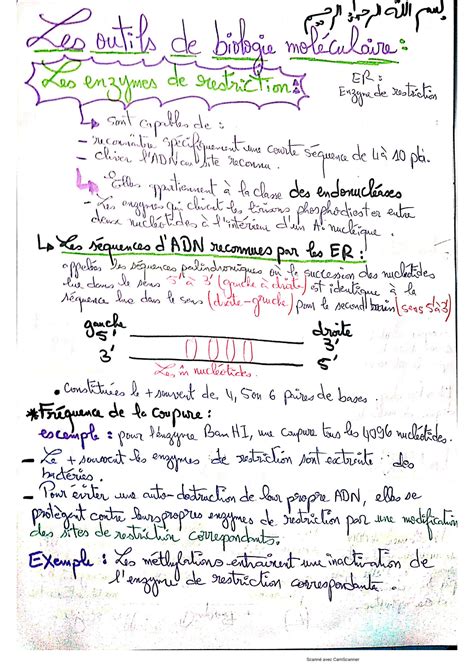 بسم الله الرحمن الرحيم
Les outils de biologie moléculaire:
Les enzymes de restriction:
ER:
Enzyme de restriction
↳ sont capables de :
- reconnaître spécifiquement une courte séquence de 4 à 10 pb.
- cliver l'ADN au site reconnu.
↳ Elles appartiennent à la classe des endonucléases
- Les enzymes qui clivent les liaisons phosphodiester entre
deux nucléotides à l'intérieur d'un A. nucléique.
↳ Les séquences d'ADN reconnues par les ER :
appelées les séquences palindromiques où la succession des nucléotides
lue dans le sens 5' à 3' (gauche à droite) est identique à la
séquence lue dans le sens (droite-gauche) pour le second brin (sens 5' à 3')
gauche droite
5' 3'
3' 5'
Les m̂ nucléotides.
• Constituées le + souvent de 4, 5 ou 6 paires de bases.
*Fréquence de la Coupure :
exemple : pour l'enzyme BamHI, une coupure tous les 4096 nucléotides.
- Le + souvent les enzymes de restriction sont extraite des
bactéries.
- Pour éviter une auto-destruction de leur propre ADN, elles se
protègent contre leurs propres enzymes de restriction par une modification
des sites de restriction correspondants.
Exemple : Les méthylations entraînent une inactivation de
l'enzyme de restriction correspondante.
Scanné avec CamScanner